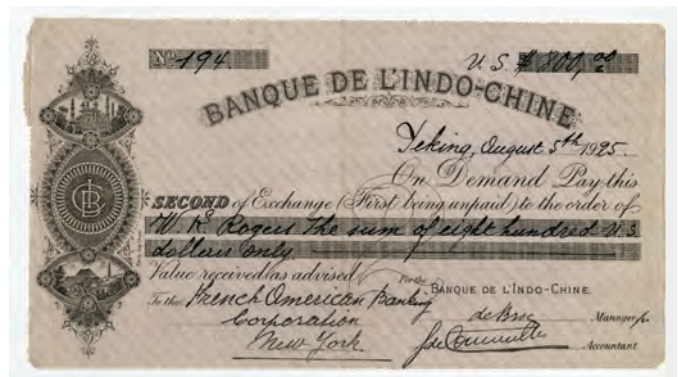 No 194 U. S. $ 800,00
BANQUE DE L'INDO-CHINE
Peking, August 5th 1925.
On Demand Pay this
SECOND of Exchange (First being unpaid) to the order of
W. R. Rogers The sum of eight hundred U.S.
dollars only
Value received as advised
For the BANQUE DE L'INDO-CHINE.
To the French American Banking
Corporation
New York.
Manager
Accountant